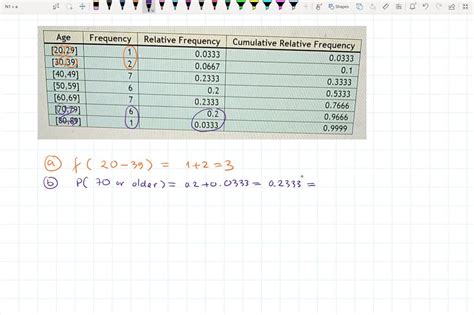 Shapes
Age Frequency Relative Frequency Cumulative Relative Frequency
[20,29] 1 0.0333 0.0333
[30,39] 2 0.0667 0.1
[40,49] 7 0.2333 0.3333
[50,59] 6 0.2 0.5333
[60,69] 7 0.2333 0.7666
[70,79] 6 0.2 0.9666
[80,89] 1 0.0333 0.9999
a f ( 20 – 39 ) = 1+2 = 3
b P( 70 or older ) = 0.2 + 0.0333 = 0.2333 =